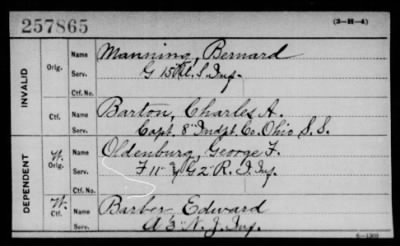 257865
(3-H-4)
INVALID
DEPENDENT
Orig.
Name Manning, Bernard
Serv. G 15 U. S. Inf.
Ctf. No.
Ctf.
Name Barton, Charles A.
Serv. Capt. 8" Indpt. Co. Ohio S. S.
W. Orig.
Name Oldenburg, George F.
Serv. F 11" & G 2" R. I. Inf.
Ctf. No.
W. Ctf.
Name Barber Edward
Serv. A 3" N. J. Inf.